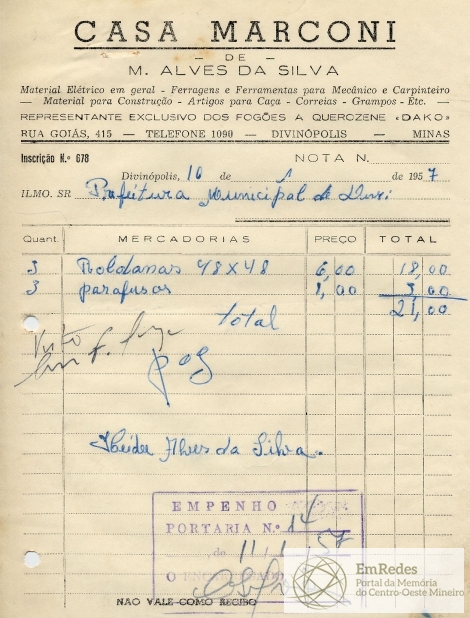 CASA MARCONI
— DE —
M. ALVES DA SILVA
Material Elétrico em geral - Ferragens e Ferramentas para Mecânico e Carpinteiro
— Material para Construção - Artigos para Caça - Correias - Grampos - Etc. —
REPRESENTANTE EXCLUSIVO DOS FOGÕES A QUEROZENE «DAKO»
RUA GOIÁS, 415 — TELEFONE 1090 — DIVINÓPOLIS — MINAS
Inscrição N.º 678
NOTA N.
Divinópolis, 10 de 1 de 1957
ILMO. SR Prefeitura Municipal de Divi
Quant. MERCADORIAS PREÇO TOTAL
3 Roldanas 48x48 6,00 18,00
3 parafusos 1,00 3,00
total 21,00
Visto
pag
Alves da Silva.
EMPENHO
PORTARIA N.º 14
de 11 1 57
NÃO VALE COMO RECIBO
EmRedes
Portal da Memória
do Centro-Oeste Mineiro